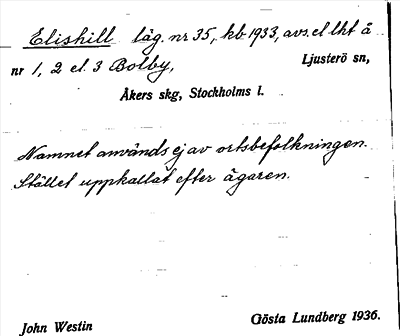 Elishill läg. nr 35, kb 1933, avs. el lht å
nr 1, 2 el. 3 Bolby, Ljusterö sn,
Åkers skg, Stockholms l.
Namnet används ej av ortsbefolkningen.
Stället uppkallat efter ägaren.
John Westin Gösta Lundberg 1936.